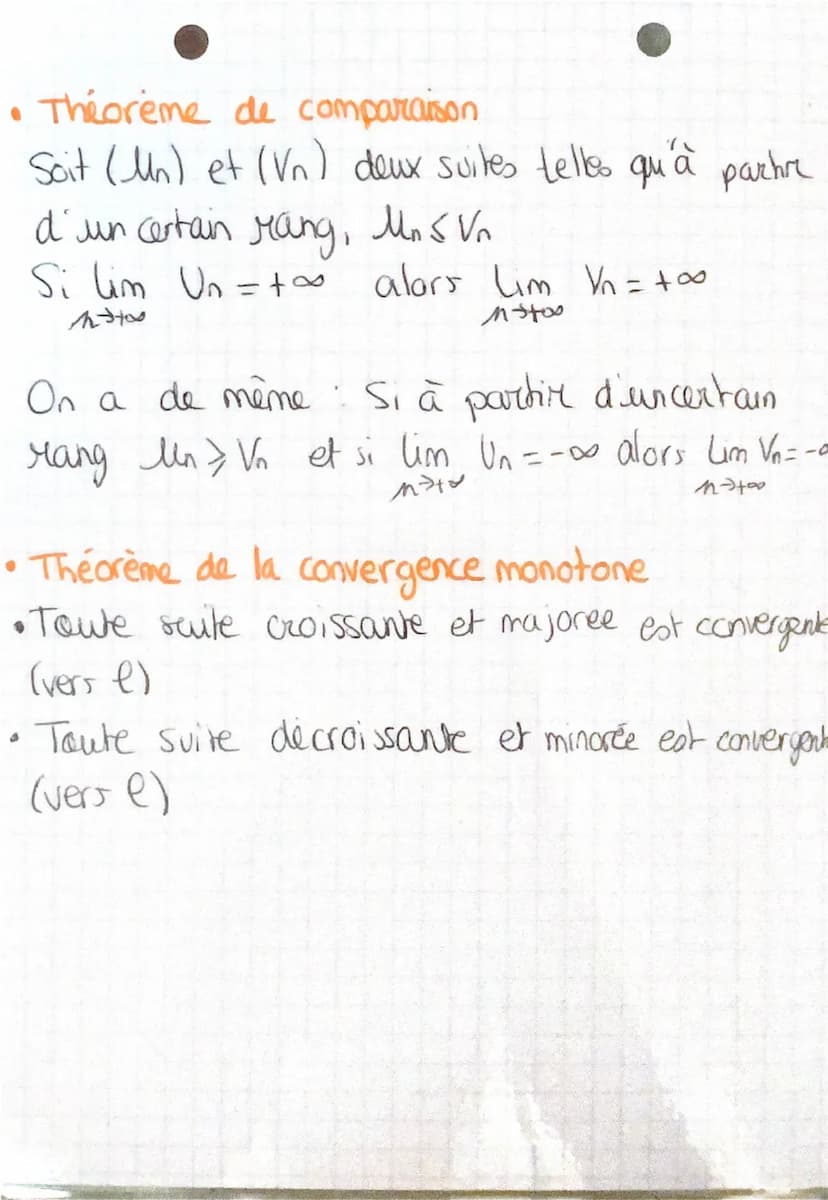 • Théorème de comparaison
Soit (Un) et (Vn) deux suites telles qu'à partir
d'un certain rang, Un ≤ Vn
Si lim Un = +∞ alors lim Vn = +∞
n→+∞ n→+∞
On a de même : Si à partir d'un certain
rang Un ≥ Vn et si lim Un = -∞ alors lim Vn = -∞
n→+∞ n→+∞
• Théorème de la convergence monotone
• Toute suite croissante et majorée est convergente
(vers ℓ)
• Toute suite décroissante et minorée est convergent
(vers ℓ)